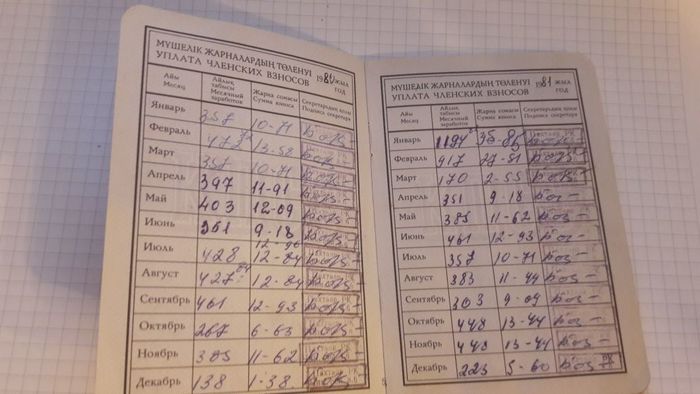 МҮШЕЛІК ЖАРНАЛАРДЫҢ ТӨЛЕНУІ
УПЛАТА ЧЛЕНСКИХ ВЗНОСОВ 1980 жыл год
Айы Месяц Айлық табысы Месячный заработок Жарна сомасы Сумма взноса Секретардың қолы Подпись секретаря
Январь 357 10-71
Февраль 477 13-58
Март 357 10-71
Апрель 397 11-91
Май 403 12-09
Июнь 361 9-18
Июль 428 12-84
Август 427 12-84
Сентябрь 461 12-93
Октябрь 267 6-63
Ноябрь 385 11-62
Декабрь 138 1-38
МҮШЕЛІК ЖАРНАЛАРДЫҢ ТӨЛЕНУІ
УПЛАТА ЧЛЕНСКИХ ВЗНОСОВ 1981 жыл год
Айы Месяц Айлық табысы Месячный заработок Жарна сомасы Сумма взноса Секретардың қолы Подпись секретаря
Январь 1194 35-86
Февраль 917 27-51
Март 170 2-55
Апрель 351 9-18
Май 385 11-62
Июнь 461 12-93
Июль 357 10-71
Август 383 11-44
Сентябрь 303 9-09
Октябрь 448 13-44
Ноябрь 448 13-44
Декабрь 223 5-60